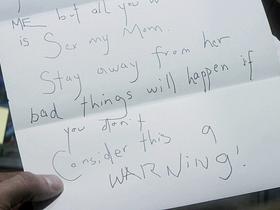 ME but all you
is Sex my Mom.
Stay away from her
bad things will happen if
you don't
Consider this a
WARNING!